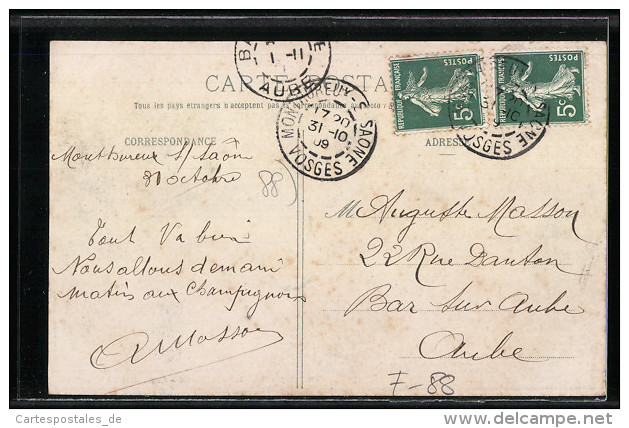 CARTE POSTALE
Tous les pays étrangers n'acceptent pas
CORRESPONDANCE
ADRESSE
Monthureux s/ Saône
31 octobre
Tout va bien
Nous allons demain
matin aux champignons
A Masson
M Auguste Masson
22 Rue Danton
Bar sur Aube
Aube
88
F-88
BA
1-11
AUBE
MONTHUREUX-S-SAONE
17 20
31-10
09
VOSGES
REPUBLIQUE FRANÇAISE
POSTES
5c
REPUBLIQUE FRANÇAISE
POSTES
5c
SAONE
VOSGES
Cartespostales_de
delcampe.net